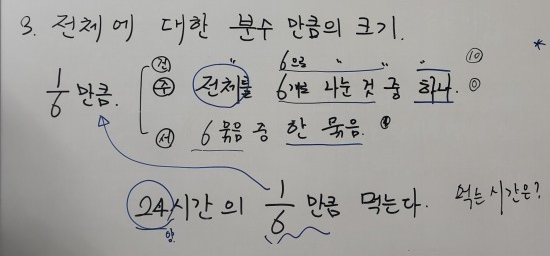 3. 전체에 대한 분수 만큼의 크기.
전 〃 6으로 〃 〃 〃 10
1/6 만큼. 주 전체를 6개로 나눈 것 중 하나. 0
서 6묶음 중 한 묶음.
24시간의 1/6 만큼 먹는다. 먹는 시간은?
양